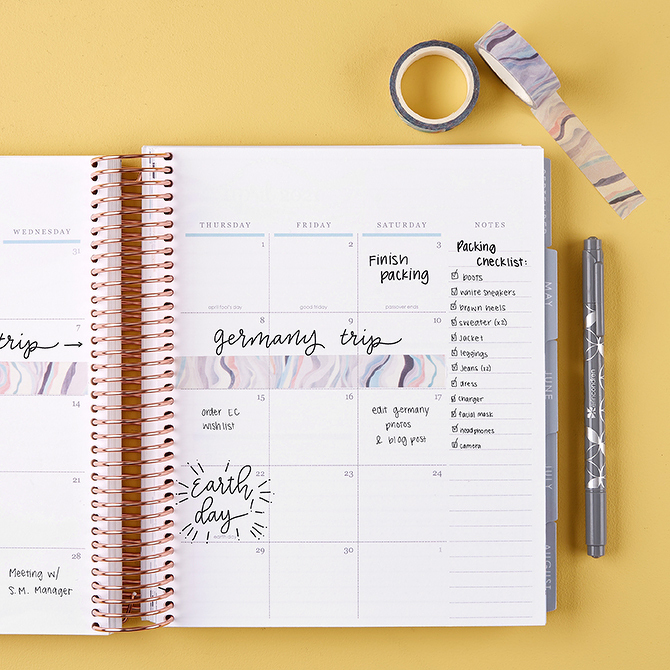 WEDNESDAY
31
7
trip →
14
21
28
Meeting w/
S.M. Manager
THURSDAY FRIDAY SATURDAY NOTES
1 2 3
Finish
packing
april fool's day good friday passover ends
8 9 10
germany trip
15 16 17
order EC
wishlist
edit germany
photos
& blog post
22 23 24
Earth
day
earth day
29 30 1
Packing
Checklist:
boots
white sneakers
brown heels
sweater (x2)
jacket
leggings
jeans (x2)
dress
charger
facial mask
headphones
camera
MAY
JUNE
JULY
AUGUST
erin condren